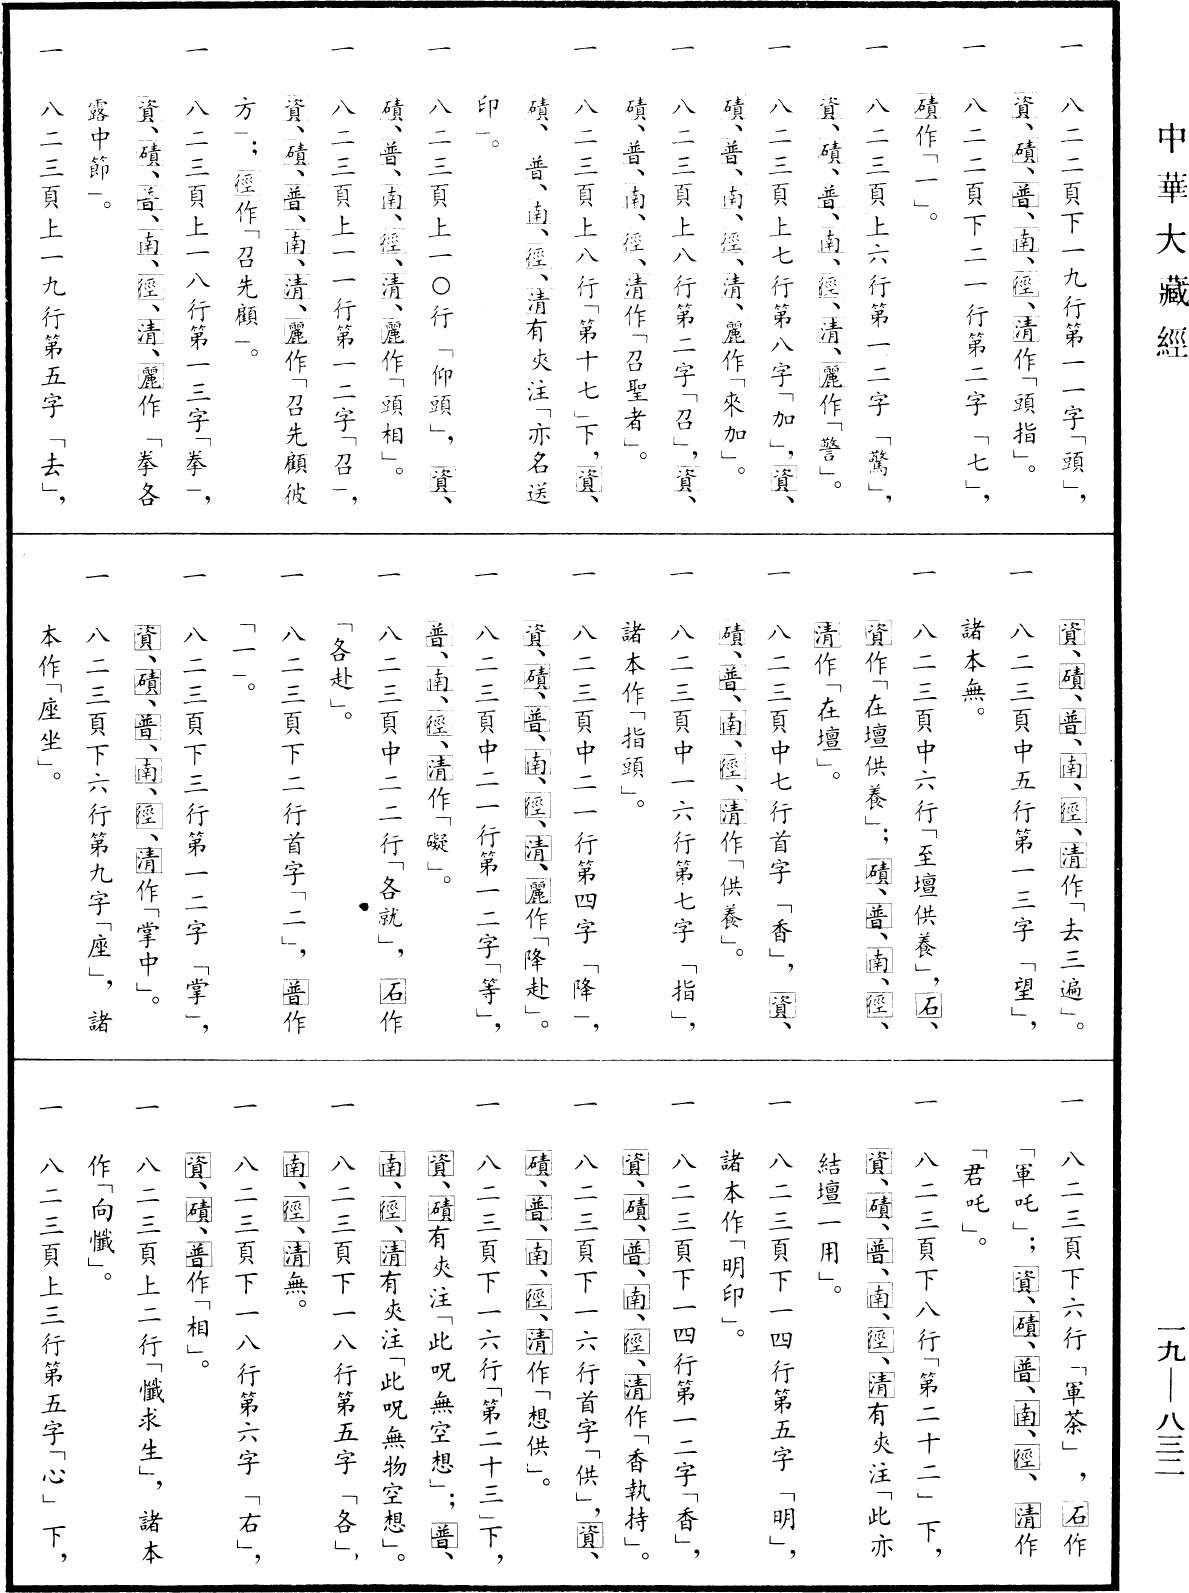 中華大藏經
一　八二二頁下一九行第一一字「頭」，
資、磧、普、南、徑、清作「頭指」。
一　八二二頁下二一行第二字「七」，
磧作「一」。
一　八二三頁上六行第一二字「驚」，
資、磧、普、南、徑、清、麗作「警」。
一　八二三頁上七行第八字「加」，資、
磧、普、南、徑、清、麗作「來加」。
一　八二三頁上八行第二字「召」，資、
磧、普、南、徑、清作「召聖者」。
一　八二三頁上八行「第十七」下，資、
磧、普、南、徑、清有夾注「亦名送
印」。
一　八二三頁上一〇行「仰頭」，資、
磧、普、南、徑、清、麗作「頭相」。
一　八二三頁上一一行第一二字「召」，
資、磧、普、南、清、麗作「召先顧彼
方」；徑作「召先顧」。
一　八二三頁上一八行第一三字「拳」，
資、磧、普、南、徑、清、麗作「拳各
露中節」。
一　八二三頁上一九行第五字「去」，
資、磧、普、南、徑、清作「去三遍」。
一　八二三頁中五行第一三字「望」，
諸本無。
一　八二三頁中六行「至壇供養」，石、
資作「在壇供養」；磧、普、南、徑、
清作「在壇」。
一　八二三頁中七行首字「香」，資、
磧、普、南、徑、清作「供養」。
一　八二三頁中一六行第七字「指」，
諸本作「指頭」。
一　八二三頁中二一行第四字「降」，
資、磧、普、南、徑、清、麗作「降赴」。
一　八二三頁中二一行第一二字「等」，
普、南、徑、清作「礙」。
一　八二三頁中二二行「各就」，石作
「各赴」。
一　八二三頁下二行首字「二」，普作
「一」。
一　八二三頁下三行第一二字「掌」，
資、磧、普、南、徑、清作「掌中」。
一　八二三頁下六行第九字「座」，諸
本作「座坐」。
一　八二三頁下六行「軍茶」，石作
「軍吒」；資、磧、普、南、徑、清作
「君吒」。
一　八二三頁下八行「第二十二」下，
資、磧、普、南、徑、清有夾注「此亦
結壇一用」。
一　八二三頁下一四行第五字「明」，
諸本作「明印」。
一　八二三頁下一四行第一二字「香」，
資、磧、普、南、徑、清作「香執持」。
一　八二三頁下一六行首字「供」，資、
磧、普、南、徑、清作「想供」。
一　八二三頁下一六行「第二十三」下，
資、磧有夾注「此呪無空想」；普、
南、徑、清有夾注「此呪無物空想」。
一　八二三頁下一八行第五字「各」，
南、徑、清無。
一　八二三頁下一八行第六字「右」，
資、磧、普作「相」。
一　八二三頁上二行「懺求生」，諸本
作「向懺」。
一　八二三頁上三行第五字「心」下，
一九—八三二